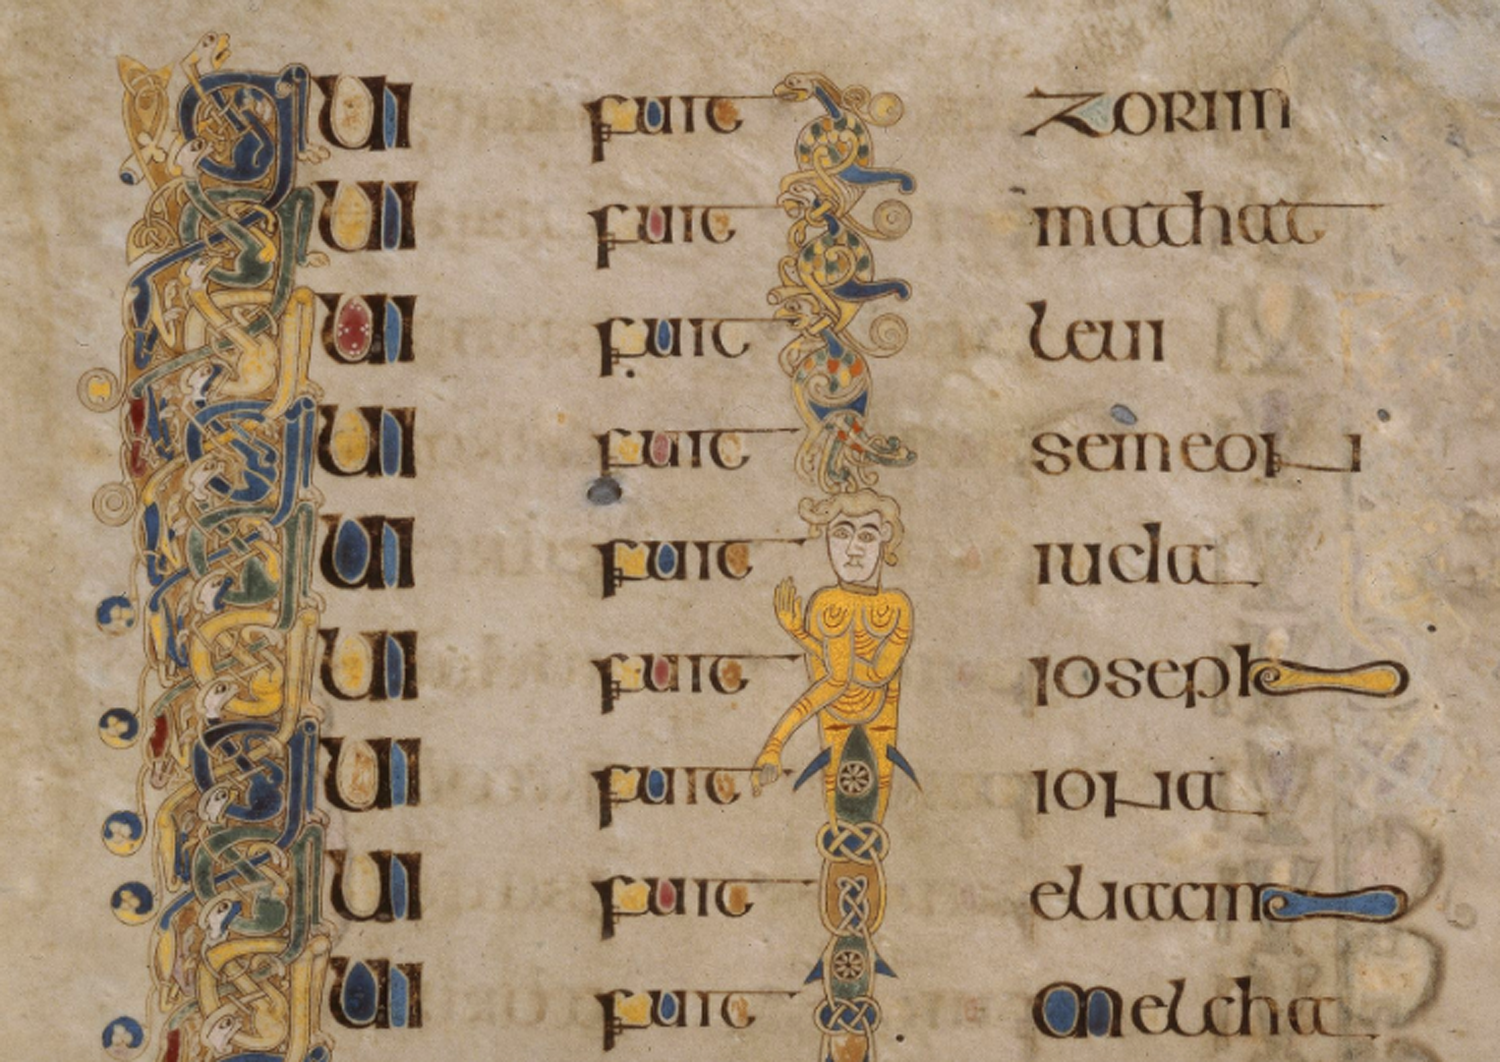 QUI fuit ZORIM
QUI fuit mathat
QUI fuit leui
QUI fuit semeon
QUI fuit iuda
QUI fuit ioseph
QUI fuit iona
QUI fuit eliacim
QUI fuit melcha